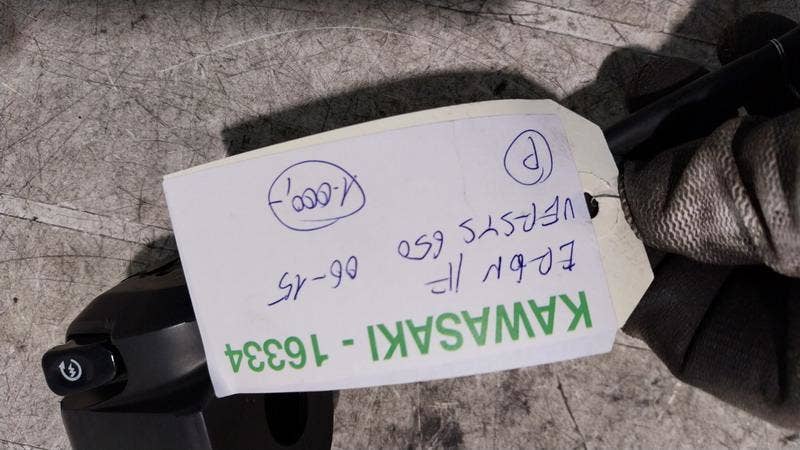 KAWASAKI - 16334
ER-6N/F 06-15
VERSYS 650
1.000,-
P